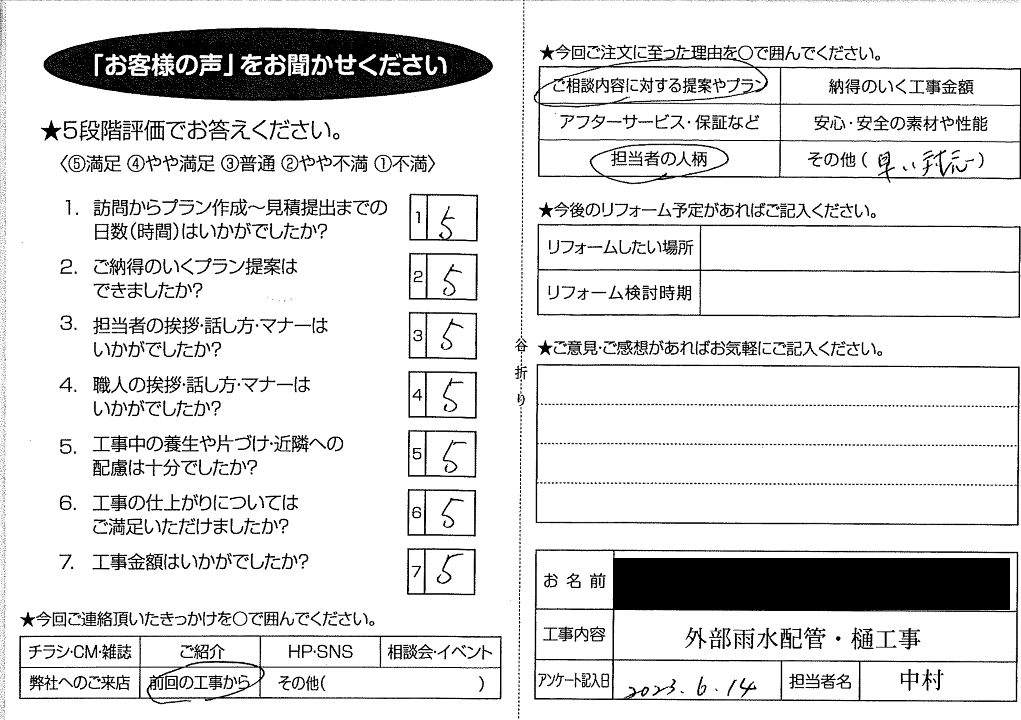 「お客様の声」をお聞かせください
★5段階評価でお答えください。
〈⑤満足 ④やや満足 ③普通 ②やや不満 ①不満〉
1. 訪問からプラン作成〜見積提出までの
日数(時間)はいかがでしたか?
1 5
2. ご納得のいくプラン提案は
できましたか?
2 5
3. 担当者の挨拶・話し方・マナーは
いかがでしたか?
3 5
4. 職人の挨拶・話し方・マナーは
いかがでしたか?
4 5
5. 工事中の養生や片づけ・近隣への
配慮は十分でしたか?
5 5
6. 工事の仕上がりについては
ご満足いただけましたか?
6 5
7. 工事金額はいかがでしたか?
7 5
★今回ご連絡頂いたきっかけを○で囲んでください。
チラシ・CM・雑誌 ご紹介 HP・SNS 相談会・イベント
弊社へのご来店 前回の工事から その他( )
谷折り
★今回ご注文に至った理由を○で囲んでください。
ご相談内容に対する提案やプラン 納得のいく工事金額
アフターサービス・保証など 安心・安全の素材や性能
担当者の人柄 その他(早い対応)
★今後のリフォーム予定があればご記入ください。
リフォームしたい場所
リフォーム検討時期
★ご意見・ご感想があればお気軽にご記入ください。
お名前
工事内容 外部雨水配管・樋工事
アンケート記入日 2023.6.14 担当者名 中村